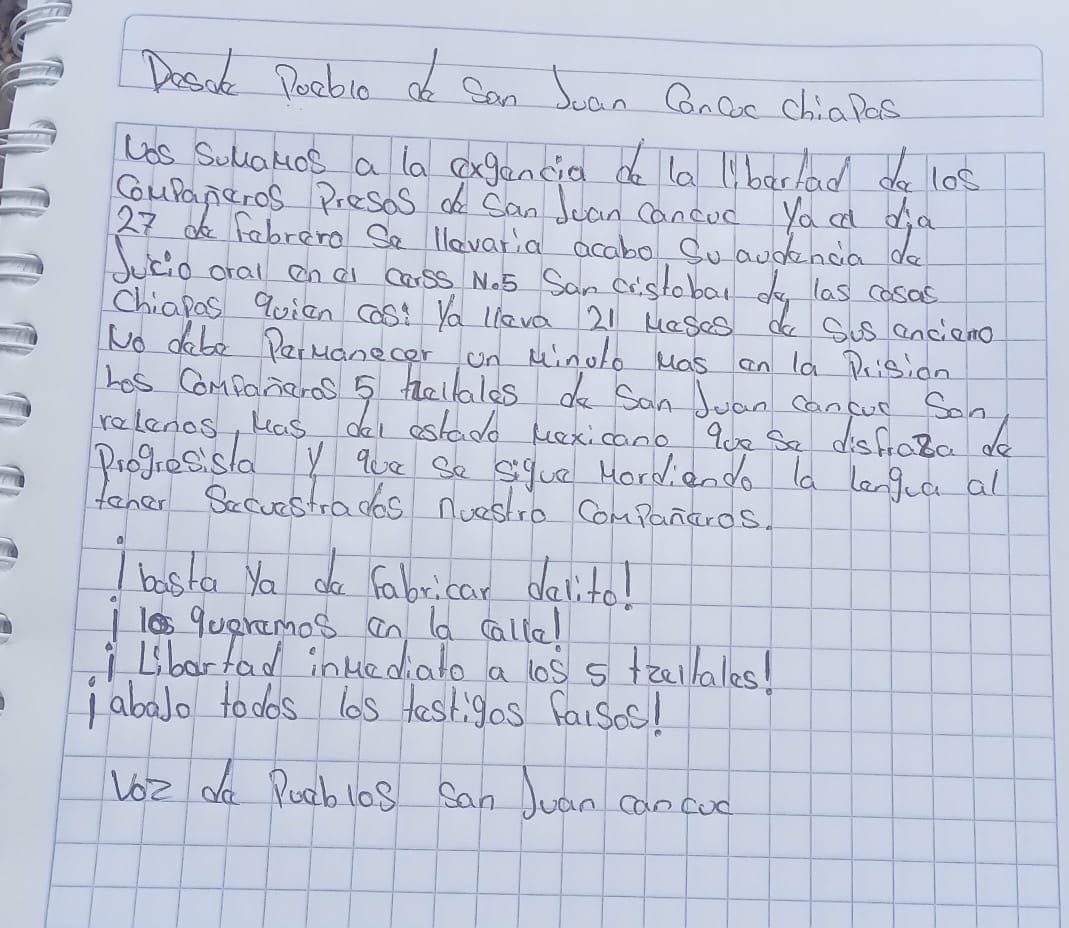 Desde Pueblo de San Juan Cancuc chiapas
Nos sumamos a la exgencia de la libertad de los
Compañeros Presos de San Juan cancuc Ya el dia
27 de febrero Se llevaria acabo Su audencia de
Juicio oral en el carss No.5 San cristobal de las casas
Chiapas quien casi Ya lleva 21 Meses de Sus anciano
No debe Permanecer un Minoto Mas en la Prision
Los Compañeros 5 tzeltales de San Juan cancuc Son,
relenos, Mas del estado Mexicano que Se disfraza de
Progresista y que Se sigue Mordiendo la lengua al
tener Secuestrados nuestro Compañeros.
¡basta Ya de fabricar delito!
¡los queremos en la calle!
¡Libertad inmediato a los 5 tzeltales!
¡abaJo todos los testigos falsos!
Voz de Pueblos San Juan cancuc